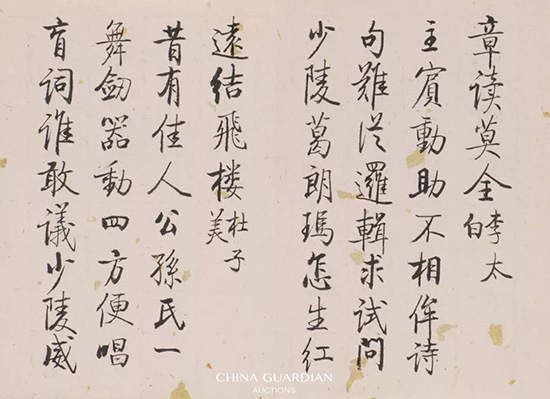 章读莫全李太白
主賓動助不相侔詩
句難從邏輯求試問
少陵葛朗瑪怎生紅
遠結飛楼杜子美
昔有佳人公孫氏一
舞劔器動四方便唱
盲词谁敢議少陵威
CHINA GUARDIAN
AUCTIONS